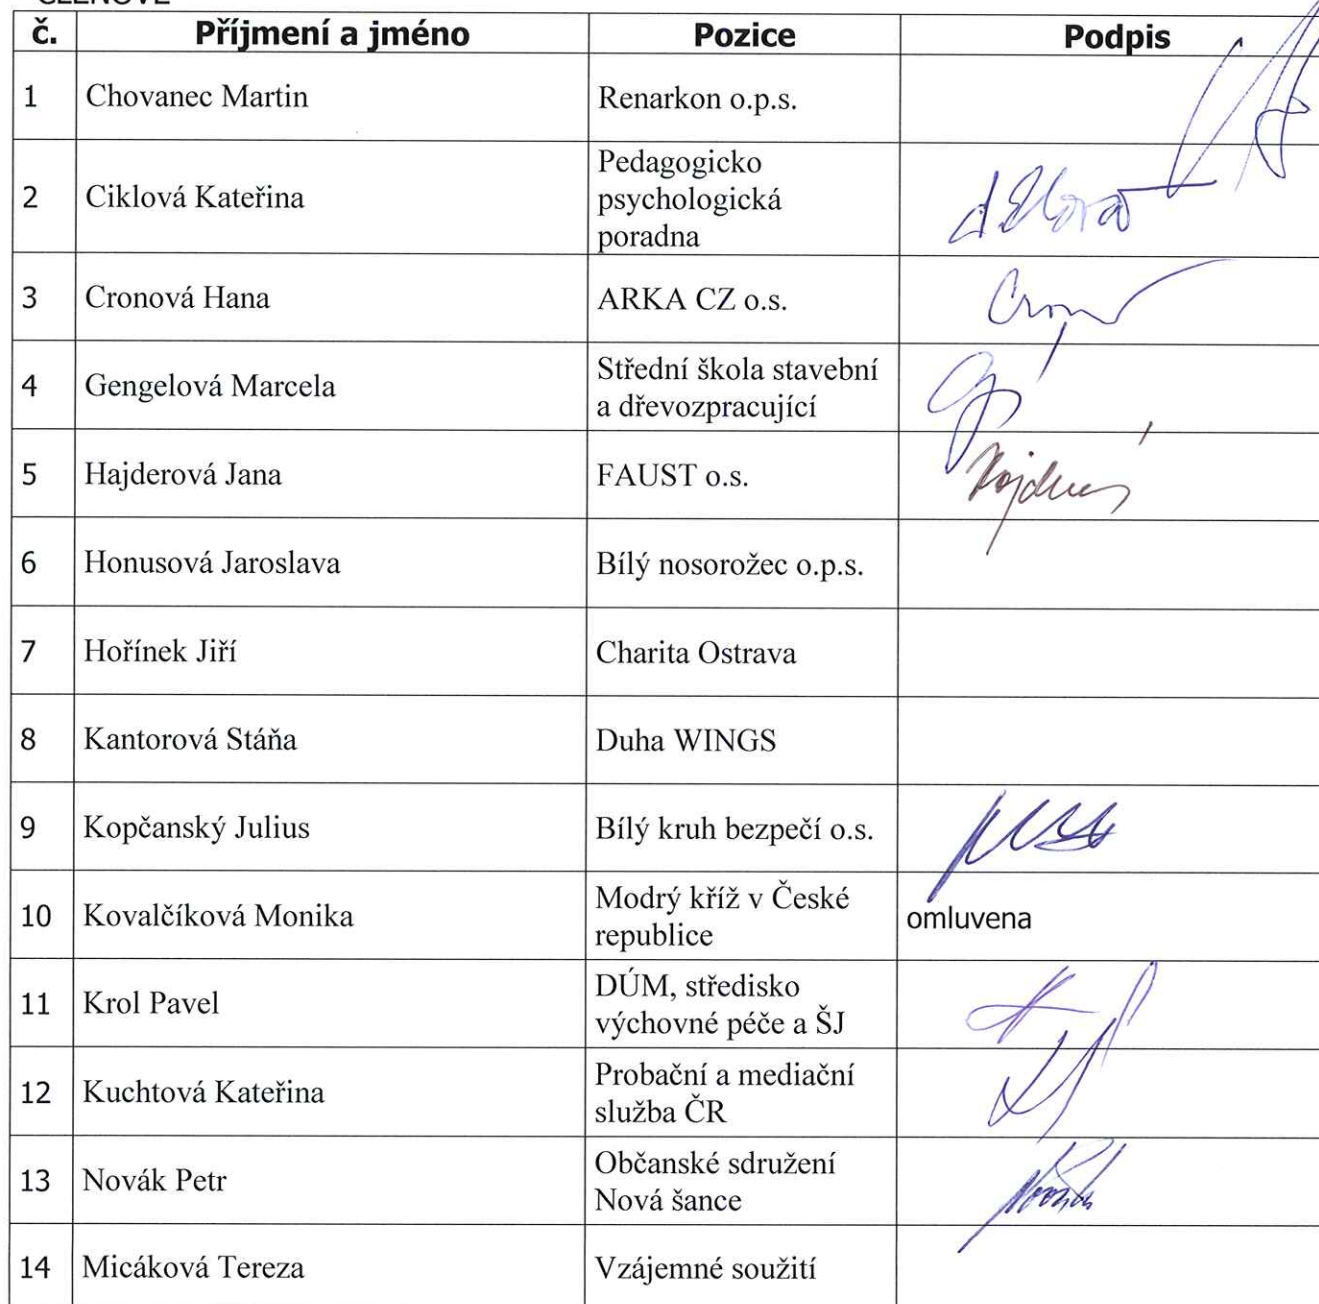 ČLENOVÉ
č. Příjmení a jméno Pozice Podpis
1 Chovanec Martin Renarkon o.p.s.
2 Ciklová Kateřina Pedagogicko
psychologická
poradna
3 Cronová Hana ARKA CZ o.s.
4 Gengelová Marcela Střední škola stavební
a dřevozpracující
5 Hajderová Jana FAUST o.s.
6 Honusová Jaroslava Bílý nosorožec o.p.s.
7 Hořínek Jiří Charita Ostrava
8 Kantorová Stáňa Duha WINGS
9 Kopčanský Julius Bílý kruh bezpečí o.s.
10 Kovalčíková Monika Modrý kříž v České
republice omluvena
11 Krol Pavel DÚM, středisko
výchovné péče a ŠJ
12 Kuchtová Kateřina Probační a mediační
služba ČR
13 Novák Petr Občanské sdružení
Nová šance
14 Micáková Tereza Vzájemné soužití